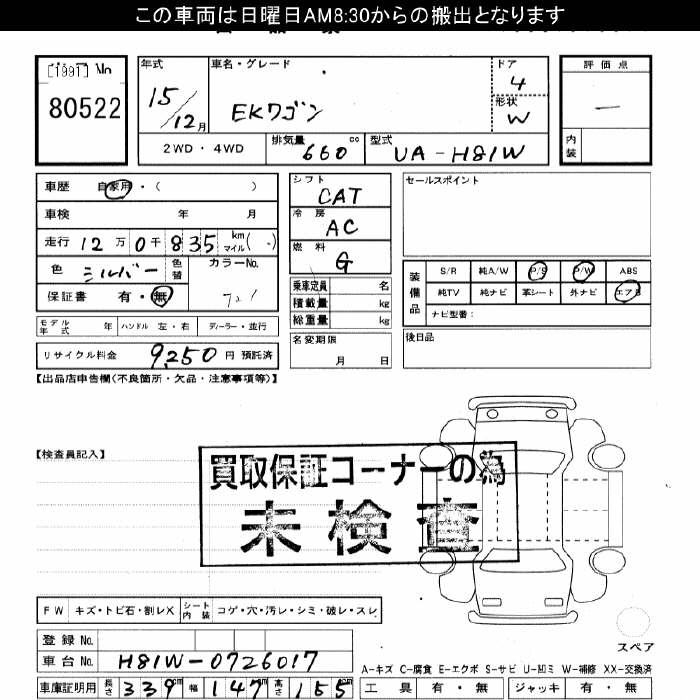 この車両は日曜日AM8:30からの搬出となります
[1991] No 80522
年式 15/12月
車名・グレード EKワゴン
ドア 4
形状 W
評価点 ―
内装
2WD・4WD
排気量 660 cc
型式 UA-H81W
車歴 自家用・( )
車検 年 月
走行 12万0千835 km マイル( )
色 シルバー 色替
カラーNo.
保証書 有・無
モデル年式 年 ハンドル 左・右 ディーラー・並行
リサイクル料金 9,250 円 預託済
シフト CAT
冷房 AC
燃料 G
乗車定員 名
積載量 kg
総重量 kg
名変期限 月 日
セールスポイント
装備品
S/R 純A/W P/S P/W ABS
純TV 純ナビ 革シート 外ナビ エアB
ナビ型番:
後日品
【出品店申告欄(不良箇所・欠品・注意事項等)】
【検査員記入】
買取保証コーナーの為
未検査
FW キズ・トビ石・割レX シート内装 コゲ・穴・汚レ・シミ・破レ・スレ
登録No.
車台No. H81W-0726017
車庫証明用 長さ 339 cm 幅 147 cm 高さ 155 cm
スペア
A-キズ C-腐食 E-エクボ S-サビ U-凹ミ W-補修 XX-交換済
工具 有・無 ジャッキ 有・無